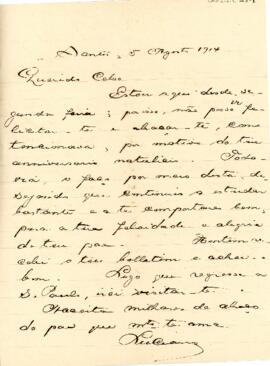 Santos, 5 Agosto 1914
Querido Celso
Estou aqui desde se-
gunda feira; por isso, não posso fe-
licitar-te e abraçar-te, como
tencionava, por motivo do teu
anniversario natalicio. Toda-
via, o faço por meio desta, de-
sejando que continues a estudar
bastante e a te comportares bem,
para a tua felicidade e alegria
do teu pae. Hontem re-
cebi o teu bolletim e achei
bom. Logo que regresse a
S. Paulo, irei visitar-te.
Acceita milhares de abraços
do pae que mto. te ama